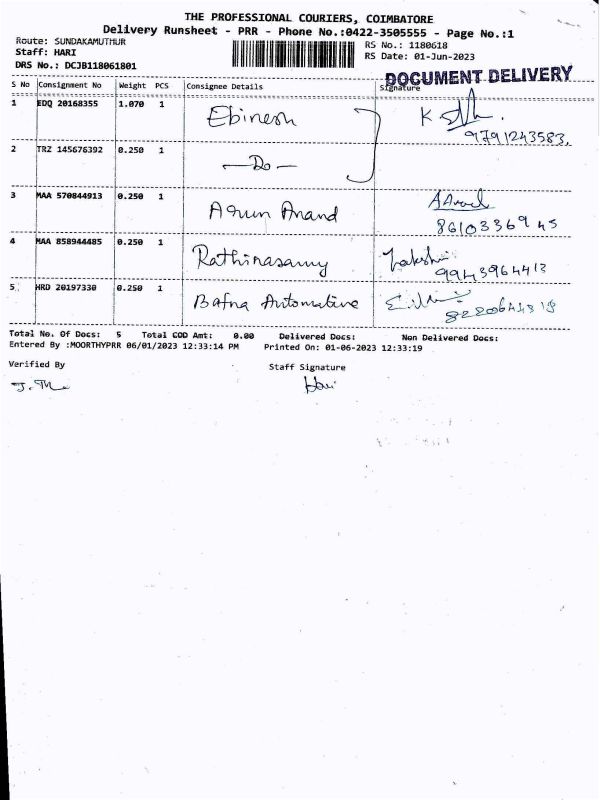 THE PROFESSIONAL COURIERS, COIMBATORE
Delivery Runsheet - PRR - Phone No.:0422-3505555 - Page No.:1
Route: SUNDAKAMUTHUR
Staff: HARI
DRS No.: DCJB118061801
RS No.: 1180618
RS Date: 01-Jun-2023
DOCUMENT DELIVERY
S No Consignment No Weight PCS Consignee Details Signature
1 EDQ 20168355 1.070 1 Ebinesh
9791243583.
2 TRZ 145676392 0.250 1 —Do—
3 MAA 570844913 0.250 1 Arun Anand
8610336945
4 MAA 858944485 0.250 1 Rathinasamy
9943964413
5 HRD 20197330 0.250 1 Bafna Automative
Total No. Of Docs: 5 Total COD Amt: 0.00 Delivered Docs: Non Delivered Docs:
Entered By :MOORTHYPRR 06/01/2023 12:33:14 PM Printed On: 01-06-2023 12:33:19
Verified By Staff Signature
Hari